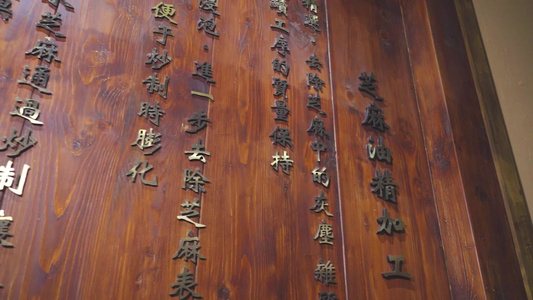 芝麻油精加工
清雜。去除芝麻中的灰塵雜
續工序的質量保持
浸泡。進一步去除芝麻表
便于炒制時膨化
芝麻通過炒制